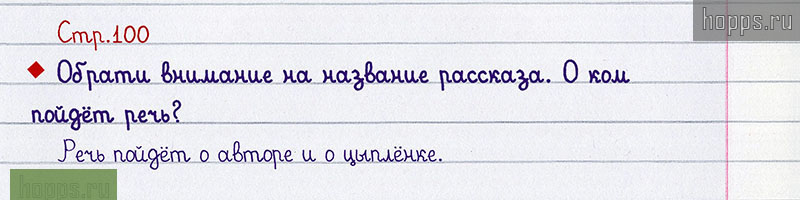 hopps.ru
Стр.100
Обрати внимание на название рассказа. О ком
пойдёт речь?
Речь пойдёт о авторе и о цыплёнке.
hopps.ru